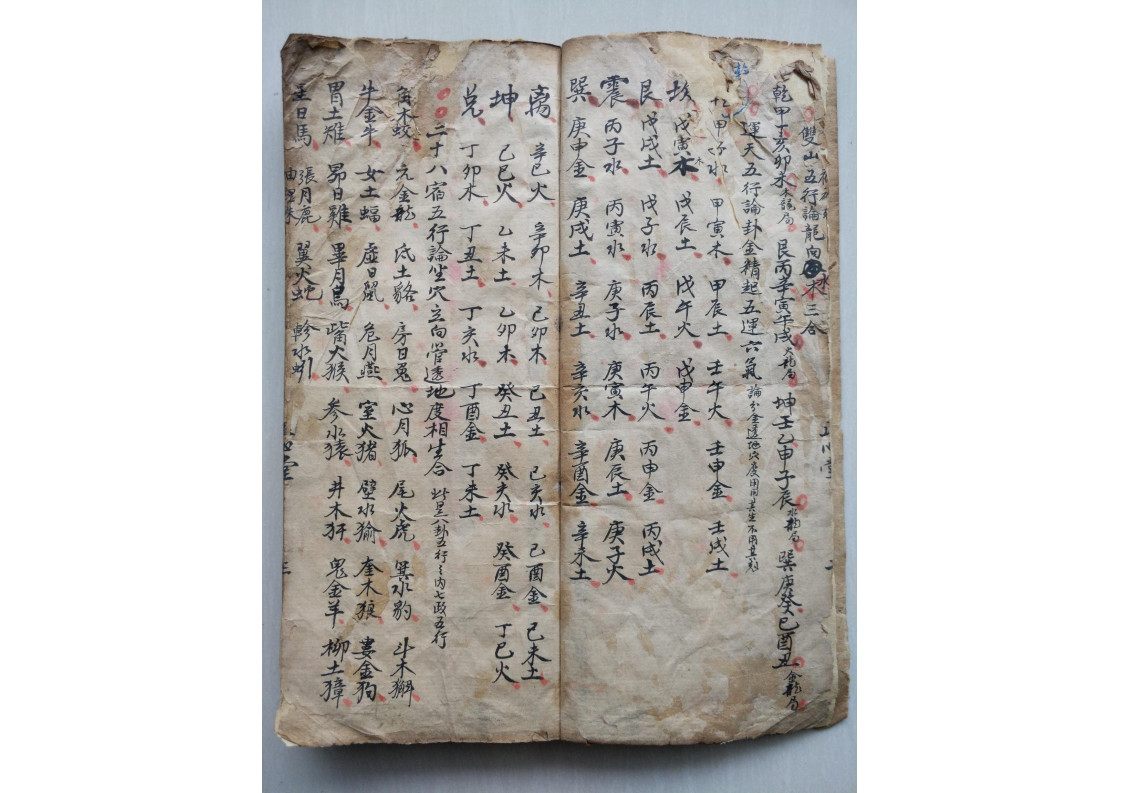 雙山五行論龍向水三合
乾甲丁亥卯未木龍局 艮丙辛寅午戌火龍局 坤壬乙申子辰水龍局 巽庚癸巳酉丑金龍局
運天五行論卦金精起五運六氣
甲子水 甲寅木 甲辰土 壬午火 壬申金 壬戌土
坎 戊寅木 戊辰土 戊午火 戊申金
艮 戊戌土 戊子水 丙辰土 丙午火 丙申金 丙戌土
震 丙子水 丙寅水 庚子水 庚寅木 庚辰土 庚子火
巽 庚申金 庚戌土 辛丑土 辛亥水 辛酉金 辛未土
离 辛巳火 辛卯木 己卯木 己丑土 己亥水 己酉金 己未土
坤 己巳火 乙未土 乙卯木 癸丑土 癸亥水 癸酉金 丁巳火
兌 丁卯木 丁丑土 丁亥水 丁酉金 丁未土
二十八宿五行論坐穴立向管透地度相生合 此是八卦五行之内七政五行
角木蛟 亢金龍 氐土貉 房日兔 心月狐 尾火虎 箕水豹 斗木獬
牛金牛 女土蝠 虛日鼠 危月燕 室火猪 壁水貐 奎木狼 婁金狗
胃土雉 昴日雞 畢月烏 觜火猴 参水猿 井木犴 鬼金羊 柳土獐
日馬 張月鹿 翼火蛇 軫水蚓